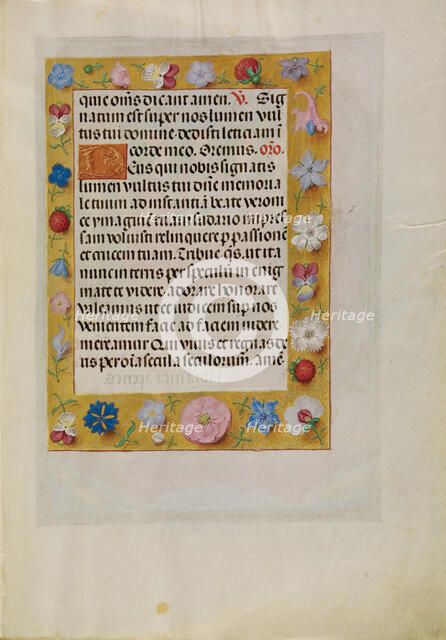 que om̄s dicant amen. V. Sig
natum est super nos lumen vul
tus tui domine dedisti leticiam i
corde meo. Oremus. or̄o.
Deus qui nobis signatis
lumen vultus tui dn̄e memoria
le tuum ad instantiā beate veroni
ce ymaginē tuam sudario impres
sam voluisti relinquere p passionē
et crucem tuam. Tribue q̄s ut ita
nunc in terris per speculū in enig
mate et videre adorare honorare
valeamus ut te iudicem sup nos
venientem facie ad faciem videre
mereamur. Qui vivis et regnas de
us per oīa secula seculorum. amē
Heritage
Heritage
Heritage
Heritage
Heritage
Heritage